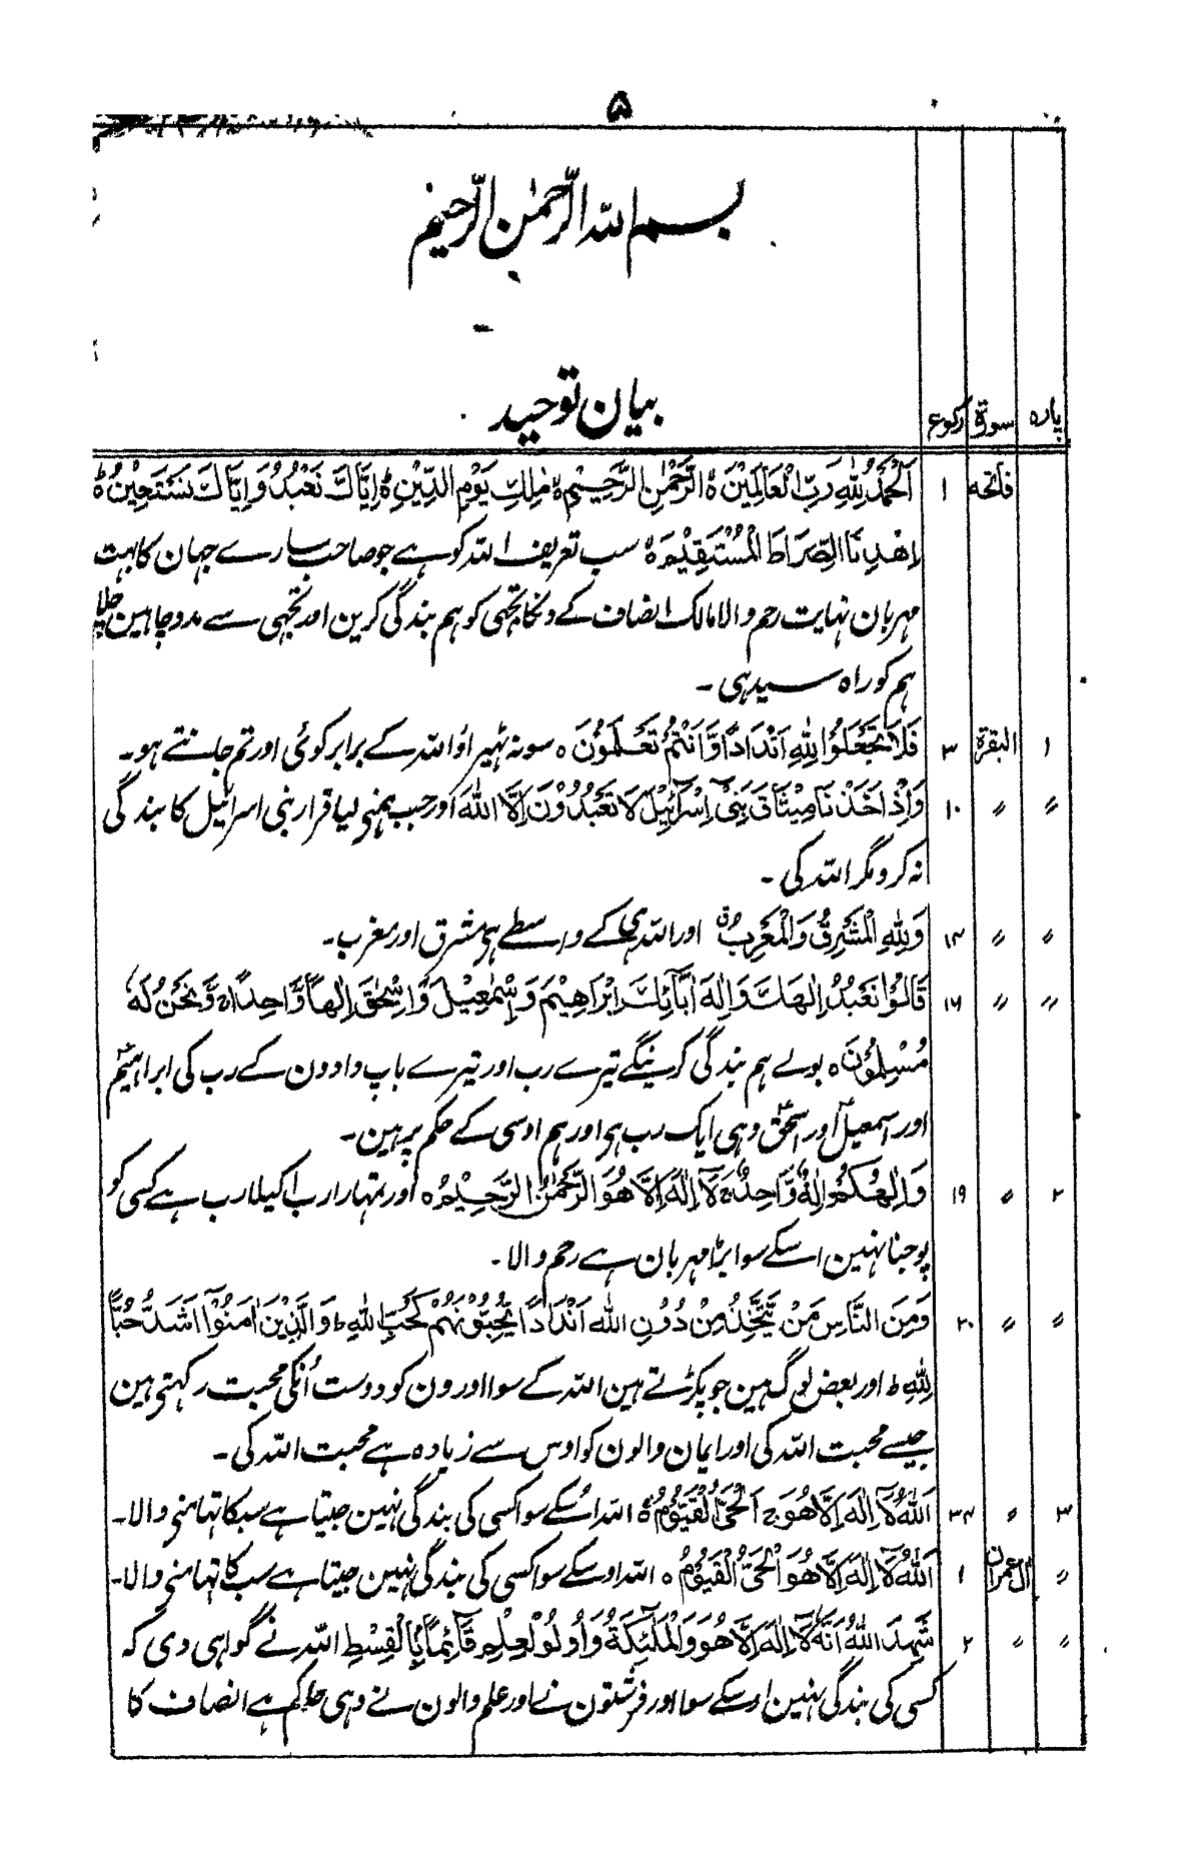 ۵
بسم الله الرحمٰن الرحیم
پارہ سورۃ رکوع بیان توحید
فاتحہ ۱ اَلْحَمْدُ لِلّٰهِ رَبِّ الْعَالَمِیْنَ ہ الرَّحْمٰنِ الرَّحِیْمِ ہ مٰلِكِ یَوْمِ الدِّیْنِ ہ اِیَّاكَ نَعْبُدُ وَ اِیَّاكَ نَسْتَعِیْنُ ہ
اِهْدِنَا الصِّرَاطَ الْمُسْتَقِیْمَ ہ سب تعریف اللہ کو ہے جو صاحب سارے جہان کا بہت
مہربان نہایت رحم والا مالک انصاف کے دنکا تجہی کو ہم بندگی کرین اور تجہی سے مدد چاہین چلا
ہم کو راہ سیدہی ۔
۱ البقرۃ ۳ فَلَا تَجْعَلُوْا لِلّٰهِ اَنْدَادًا وَّ اَنْتُمْ تَعْلَمُوْنَ ہ سو نہ ٹہیراؤ اللہ کے برابر کوئی اور تم جانتے ہو ۔
〃 〃 ۱۰ وَ اِذْ اَخَذْنَا مِیْثَاقَ بَنِیْۤ اِسْرَآئِیْلَ لَا تَعْبُدُوْنَ اِلَّا اللّٰهَ اور جب ہمنے لیا قرار بنی اسرائیل کا بندگی
نہ کرو مگر اللہ کی ۔
〃 〃 ۱۴ وَ لِلّٰهِ الْمَشْرِقُ وَ الْمَغْرِبُ اور اللہ ہی کے واسطے ہی مشرق اور مغرب ۔
〃 〃 ۱۶ قَالُوْا نَعْبُدُ اِلٰهَكَ وَ اِلٰهَ اٰبَآئِكَ اِبْرَاهِیْمَ وَ اِسْمٰعِیْلَ وَ اِسْحٰقَ اِلٰهًا وَّاحِدًا ہ وَّ نَحْنُ لَهٗ
مُسْلِمُوْنَ ہ بولے ہم بندگی کرینگے تیرے رب اور تیرے باپ دادون کے رب کی ابراہیمؑ
اور اسمعیلؑ اور اسحقؑ وہی ایک رب ہی اور ہم اوسی کے حکم پر ہین ۔
۲ 〃 ۱۹ وَ اِلٰهُكُمْ اِلٰهٌ وَّاحِدٌ ہ لَاۤ اِلٰهَ اِلَّا هُوَ الرَّحْمٰنُ الرَّحِیْمُ ہ اور تمہارا رب اکیلا رب ہے کسی کو
پوجنا نہین اسکے سوا بڑا مہربان ہے رحم والا ۔
〃 〃 ۲۰ وَ مِنَ النَّاسِ مَنْ یَّتَّخِذُ مِنْ دُوْنِ اللّٰهِ اَنْدَادًا یُّحِبُّوْنَهُمْ كَحُبِّ اللّٰهِ ط وَ الَّذِیْنَ اٰمَنُوْۤا اَشَدُّ حُبًّا
لِلّٰهِ ط اور بعض لوگ ہین جو پکڑتے ہین اللہ کے سوا اورون کو دوست اُنکی محبت رکہتی ہین
جیسے محبت اللہ کی اور ایمان والون کو اوس سے زیادہ ہے محبت اللہ کی ۔
۳ 〃 ۳۴ اَللّٰهُ لَاۤ اِلٰهَ اِلَّا هُوَ ج اَلْحَیُّ الْقَیُّوْمُ ہ اللہ اُسکے سوا کسی کی بندگی نہین جیتا ہے سبکا تہامنی والا ۔
〃 اٰل عمران ۱ اَللّٰهُ لَاۤ اِلٰهَ اِلَّا هُوَ الْحَیُّ الْقَیُّوْمُ ہ اللہ اوسکے سوا کسی کی بندگی نہین جیتا ہے سب کا تہامنی والا ۔
〃 〃 ۲ شَهِدَ اللّٰهُ اَنَّهٗ لَاۤ اِلٰهَ اِلَّا هُوَ وَ الْمَلٰٓئِكَةُ وَ اُولُو الْعِلْمِ قَآئِمًا بِالْقِسْطِ اللہ نے گواہی دی کہ
کسی کی بندگی نہین اوسکے سوا اور فرشتون نے اور علم والون نے وہی حاکم ہے انصاف کا